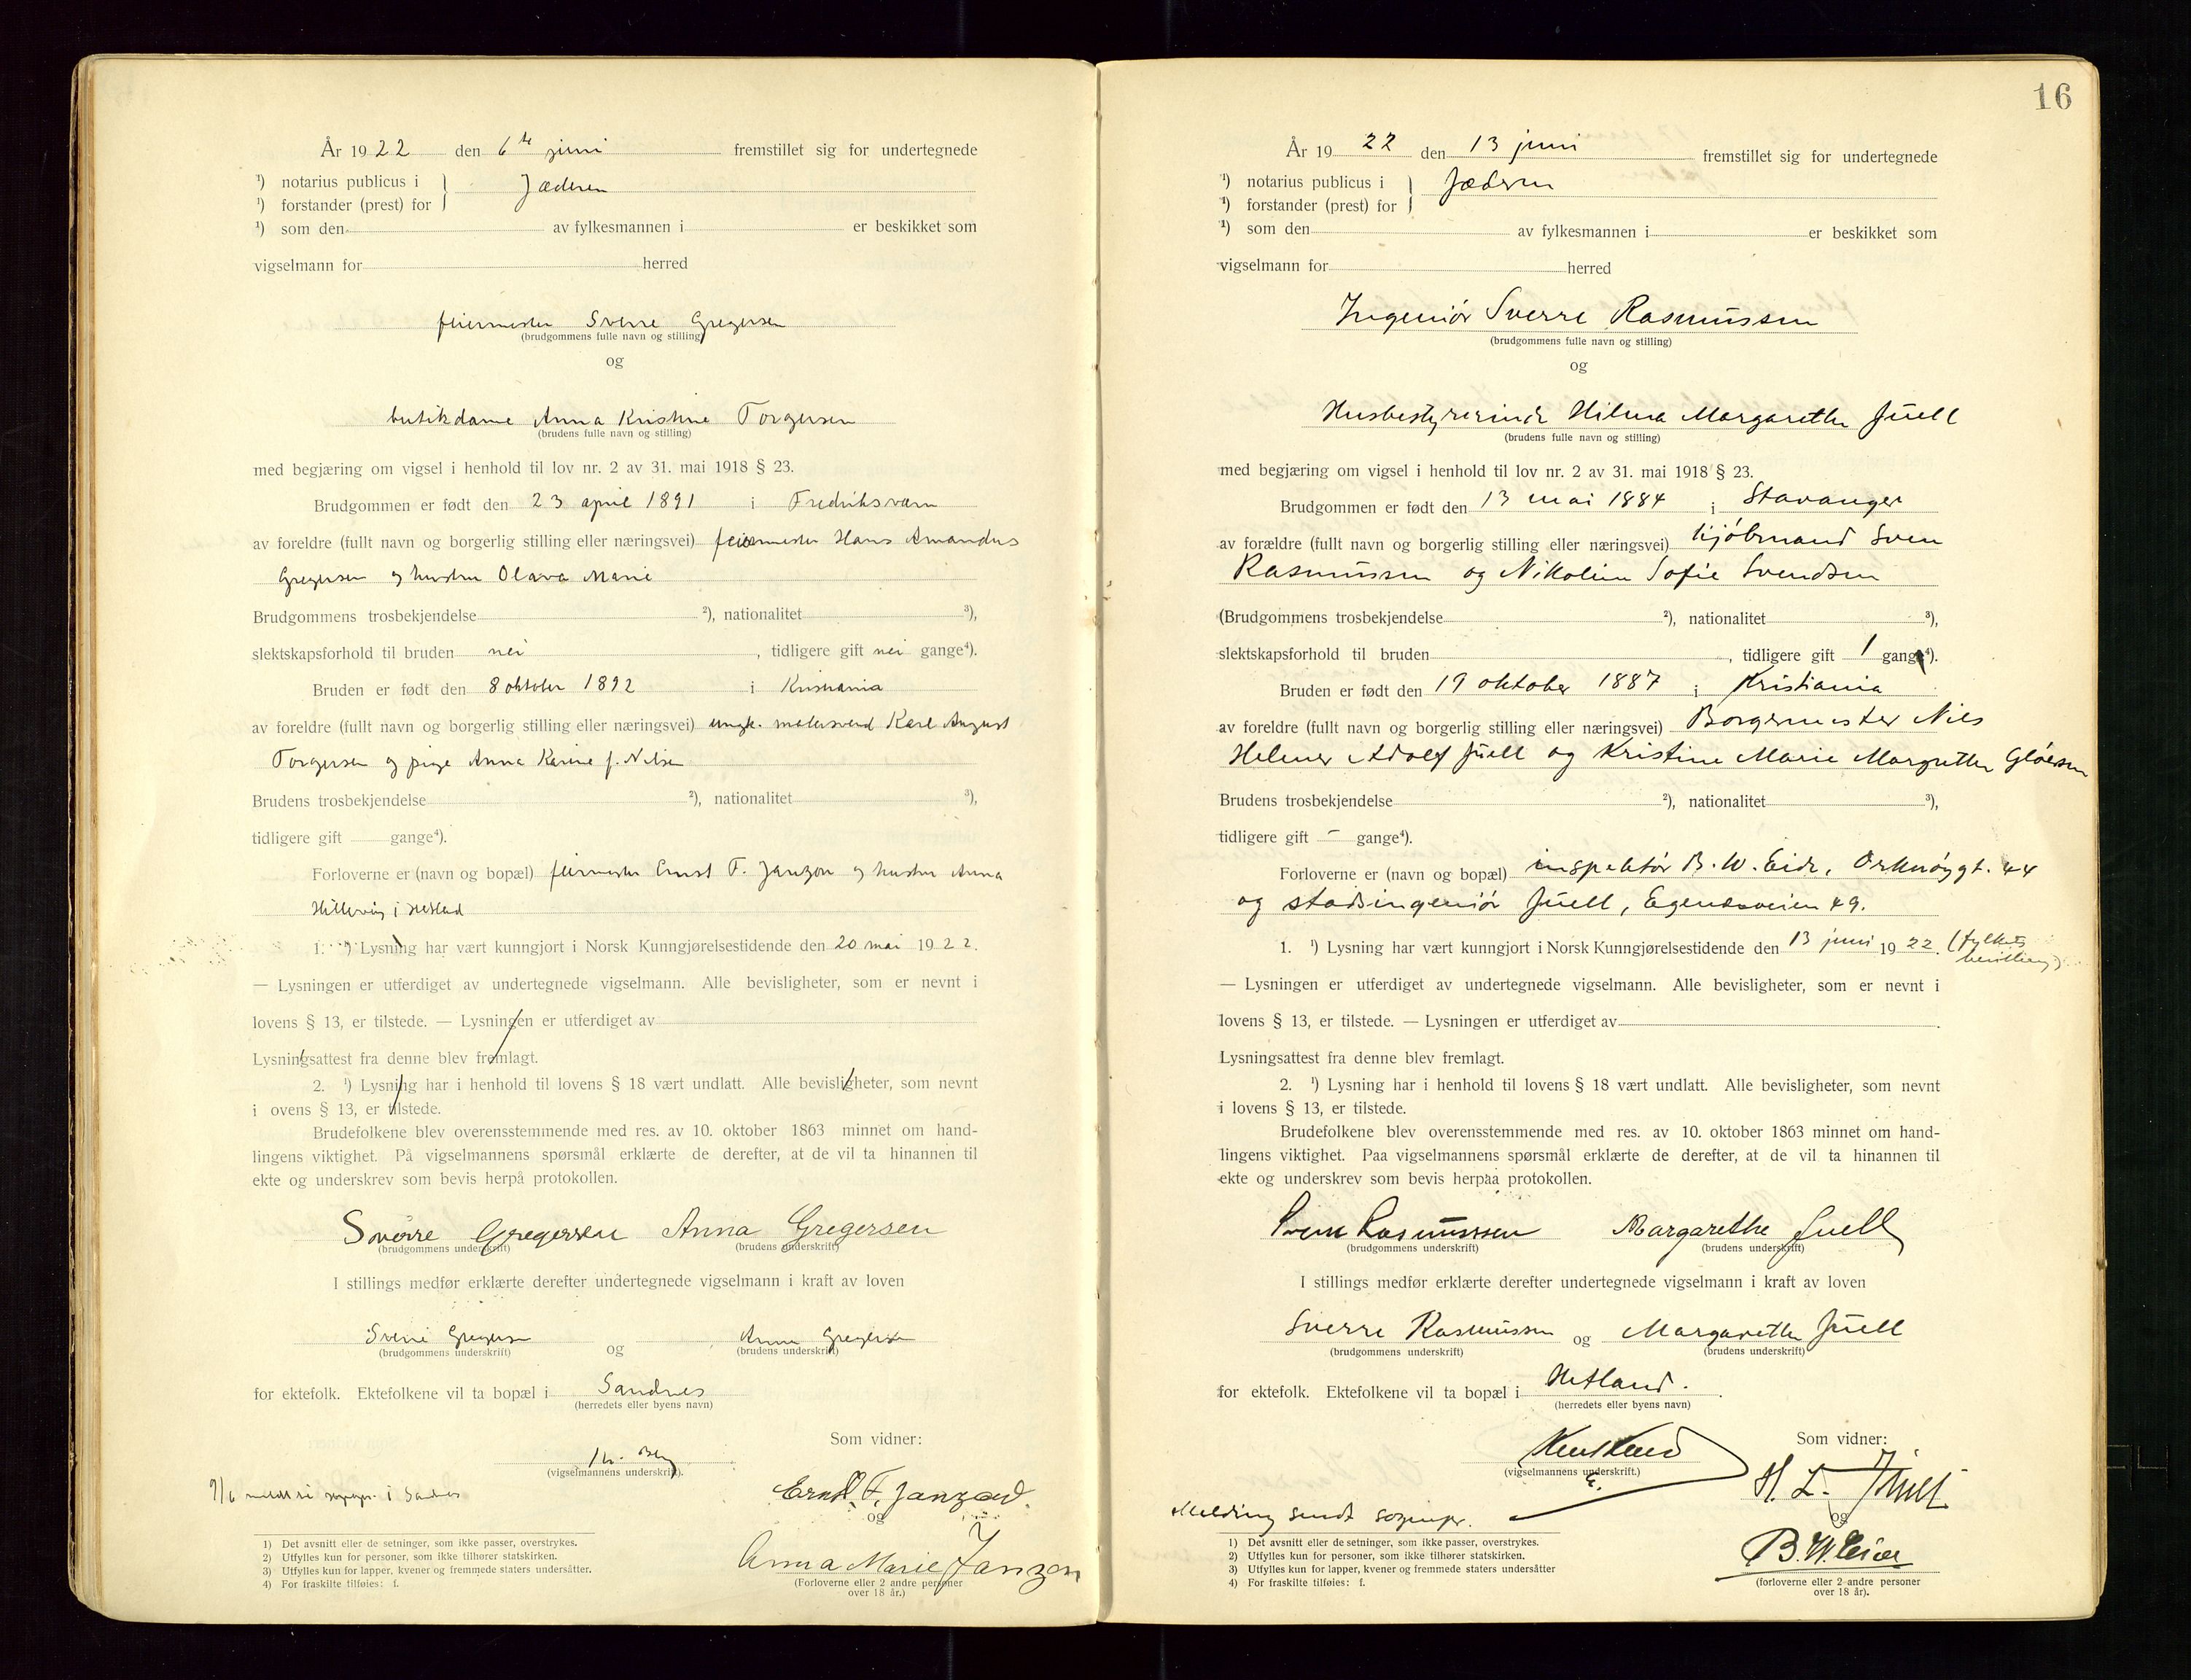 År 1922 den 6te juni fremstillet sig for undertegnede
¹) notarius publicus i } Jæderen
¹) forstander (prest) for
¹) som den av fylkesmannen i er beskikket som
vigselmann for herred
feiermester Sverre Gregersen
(brudgommens fulle navn og stilling)
og
butikdame Anna Kristine Torgersen
(brudens fulle navn og stilling)
med begjæring om vigsel i henhold til lov nr. 2 av 31. mai 1918 § 23.
Brudgommen er født den 23 april 1891 i Fredriksværn
av foreldre (fullt navn og borgerlig stilling eller næringsvei) feiermester Hans Amandus
Gregersen og hustru Olava Marie
Brudgommens trosbekjendelse ²), nationalitet ³),
slektskapsforhold til bruden nei, tidligere gift nei gange⁴).
Bruden er født den 8 oktober 1892 i Kristiania
av foreldre (fullt navn og borgerlig stilling eller næringsvei) ungk. malersvend Karl August
Torgersen og pige Anna Karine f. Nilsen
Brudens trosbekjendelse ²), nationalitet ³),
tidligere gift gange⁴).
Forloverne er (navn og bopæl) feiermester Ernst F. Janzon og hustru Anna
Hillevåg i Hetland
1. ¹) Lysning har vært kunngjort i Norsk Kunngjørelsestidende den 20 mai 1922.
— Lysningen er utferdiget av undertegnede vigselmann. Alle bevisligheter, som er nevnt i
lovens § 13, er tilstede. — Lysningen er utferdiget av
Lysningsattest fra denne blev fremlagt.
2. ¹) Lysning har i henhold til lovens § 18 vært undlatt. Alle bevisligheter, som nevnt
i ovens § 13, er tilstede.
Brudefolkene blev overensstemmende med res. av 10. oktober 1863 minnet om hand-
lingens viktighet. På vigselmannens spørsmål erklærte de derefter, at de vil ta hinannen til
ekte og underskrev som bevis herpå protokollen.
Sverre Gregersen Anna Gregersen
(brudgommens underskrift) (brudens underskrift)
I stillings medfør erklærte derefter undertegnede vigselmann i kraft av loven
Sverre Gregersen og Anna Gregersen
(brudgommens underskrift) (brudens underskrift)
for ektefolk. Ektefolkene vil ta bopæl i Sandnes
(herredets eller byens navn)
Som vidner:
(vigselmannens underskrift).
9/6 meldt i Sandnes
Ernst F. Janzon.
og
Anna Marie Janzon
(Forloverne eller 2 andre personer
over 18 år.)
1) Det avsnitt eller de setninger, som ikke passer, overstrykes.
2) Utfylles kun for personer, som ikke tilhører statskirken.
3) Utfylles kun for lapper, kvener og fremmede staters undersåtter.
4) For fraskilte tilføies: f.
16
År 1922 den 13 juni fremstillet sig for undertegnede
¹) notarius publicus i } Jæderen
¹) forstander (prest) for
¹) som den av fylkesmannen i er beskikket som
vigselmann for herred
Ingeniør Sverre Rasmussen
(brudgommens fulle navn og stilling)
og
Husbestyrerinde Hilma Margarethe Juell
(brudens fulle navn og stilling)
med begjæring om vigsel i henhold til lov nr. 2 av 31. mai 1918 § 23.
Brudgommen er født den 13 mai 1884 i Stavanger
av forældre (fullt navn og borgerlig stilling eller næringsvei) kjøbmand Sven
Rasmussen og Nikoline Sofie Svendsen
(Brudgommens trosbekjendelse ²), nationalitet ³),
slektskapsforhold til bruden, tidligere gift 1 gange⁴).
Bruden er født den 19 oktober 1887 i Kristiania
av foreldre (fullt navn og borgerlig stilling eller næringsvei) Borgermester Niels
Helmer Adolf Juell og Kristine Marie Margrethe Gløersen
Brudens trosbekjendelse ²), nationalitet ³),
tidligere gift - gange⁴).
Forloverne er (navn og bopæl) inspektør B. W. Eide, Orknøygt. 44
og stadsingeniør Juell, Egenesveien 49.
1. ¹) Lysning har vært kunngjort i Norsk Kunngjørelsestidende den 13 juni 1922. (fylkets
bevilling)
— Lysningen er utferdiget av undertegnede vigselmann. Alle bevisligheter, som er nevnt i
lovens § 13, er tilstede. — Lysningen er utferdiget av .
Lysningsattest fra denne blev fremlagt.
2. ¹) Lysning har i henhold til lovens § 18 vært undlatt. Alle bevisligheter, som nevnt
i lovens § 13, er tilstede.
Brudefolkene blev overensstemmende med res. av 10. oktober 1863 minnet om hand-
lingens viktighet. Paa vigselmannens spørsmål erklærte de derefter, at de vil ta hinannen til
ekte og underskrev som bevis herpåa protokollen.
Sverre Rasmussen Margarethe Juell
(brudgommens underskrift) (brudens underskrift)
I stillings medfør erklærte derefter undertegnede vigselmann i kraft av loven
Sverre Rasmussen og Margarethe Juell
(brudgommens underskrift) (brudens underskrift)
for ektefolk. Ektefolkene vil ta bopæl i Hetland.
(herredets eller byens navn)
Som vidner:
(vigselmannens underskrift.)
Melding sendt sognepr.
H. L. Juell
og
B. W. Eide
(forloverne eller 2 andre personer
over 18 år).
1) Det avsnitt eller de setninger, som ikke passer, overstrykes.
2) Utfylles kun for personer, som ikke tilhører statskirken.
3) Utfylles kun for lapper, kvener og fremmede staters undersåtter
4) For fraskilte tilføies: f.